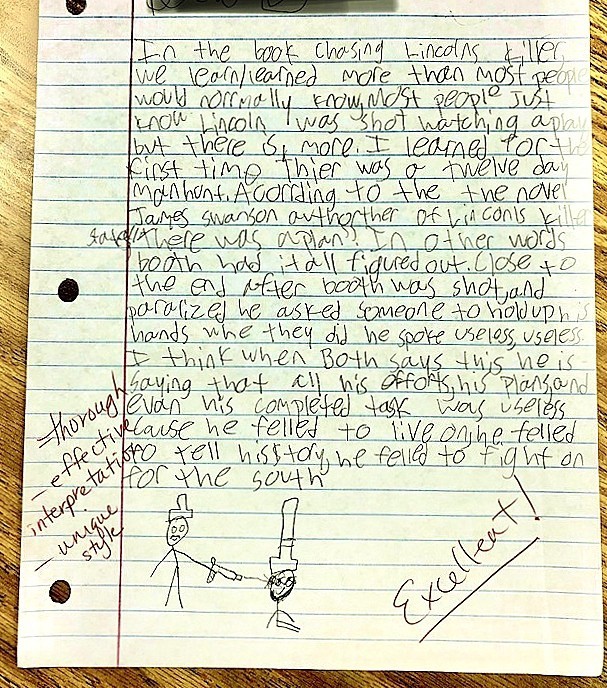 In the book Chasing Lincolns Killer,
we learn/learned more than most people
would normally know, Most people Just
know Lincoln was shot watching a play
but there is more. I learned for the
first time Thier was a twelve day
manhont. According to the the novel
James swanson authorther of Linconls Killer
states, "There was a plan". In other words
booth had it all figured out. Close to
the end after booth was shot, and
paralized he asked someone to hold up his
hands whe they did he spoke useless, useless
I think when Both says this he is
saying that all his efforts, his plans, and
evan his completed task was useless
cause he felled to live on, he felled
to tell hisstory, he felled to fight on
for the south
- thorough
- effective
interpretation
- unique
style
Excellent!